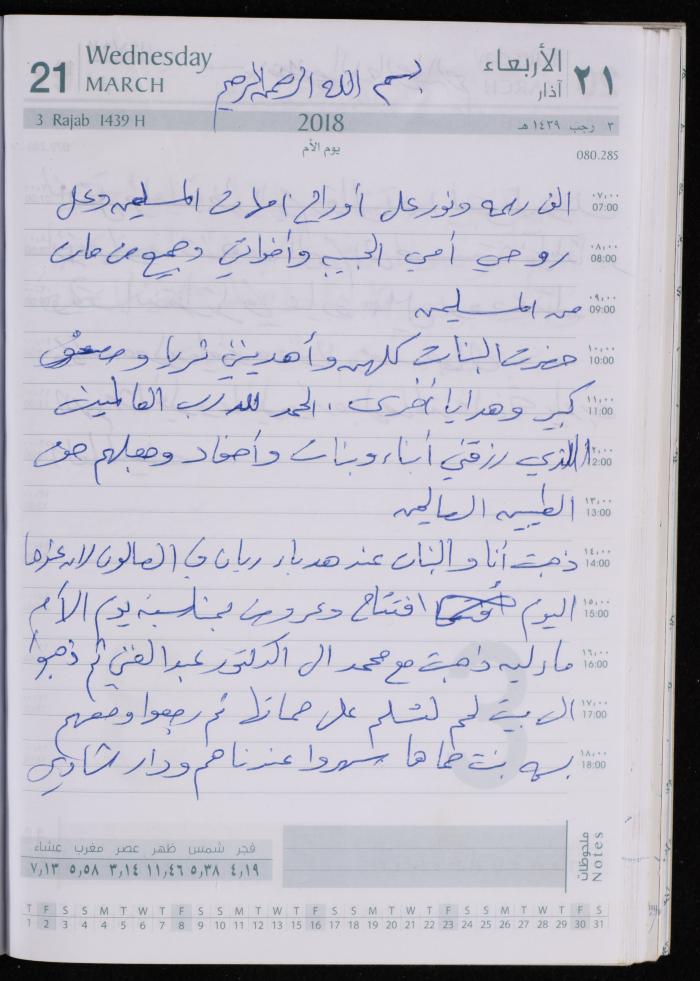 21 Wednesday MARCH
بسم الله الرحمن الرحيم
الأربعاء ٢١ آذار
3 Rajab 1439 H 2018 ٣ رجب ١٤٣٩ هـ
يوم الأم 080.285
٠٧:٠٠ 07:00 الف رحمه ونور على أرواح امهات المسلمين وعلى
٠٨:٠٠ 08:00 روحي أمي الحبيبه وأخواتي وجميع من مات
٠٩:٠٠ 09:00 من المسلمين
١٠:٠٠ 10:00 حضرت البنات كلهن وأهديتني ثريا
١١:٠٠ 11:00 كبير وهدايا أخرى . الحمد لله رب العالمين
١٢:٠٠ 12:00 الذي رزقني أبناء وبنات وأحفاد وجعلهم من
١٣:٠٠ 13:00 الطيبين الصالحين
١٤:٠٠ 14:00 ذهبت أنا والبنات عند هدباء ريان في الصالون لان عندها
١٥:٠٠ 15:00 اليوم افتتاح وعروض بمناسبة يوم الأم
١٦:٠٠ 16:00 مادلين ذهبت مع محمد ال الدكتور عبد الغني ثم ذهبوا
١٧:٠٠ 17:00 ال بيت لحم لتسلم على حماتها ثم رجعوا ومعهم
١٨:٠٠ 18:00 بنت حماها سهروا عندنا هم ودار شادي
فجر شمس ظهر عصر مغرب عشاء
٤,١٩ ٥,٣٨ ١١,٤٦ ٣,١٤ ٥,٥٨ ٧,١٣
ملحوظات Notes
T F S S M T W T F S S M T W T F S S M T W T F S S M T W T F S
1 2 3 4 5 6 7 8 9 10 11 12 13 14 15 16 17 18 19 20 21 22 23 24 25 26 27 28 29 30 31